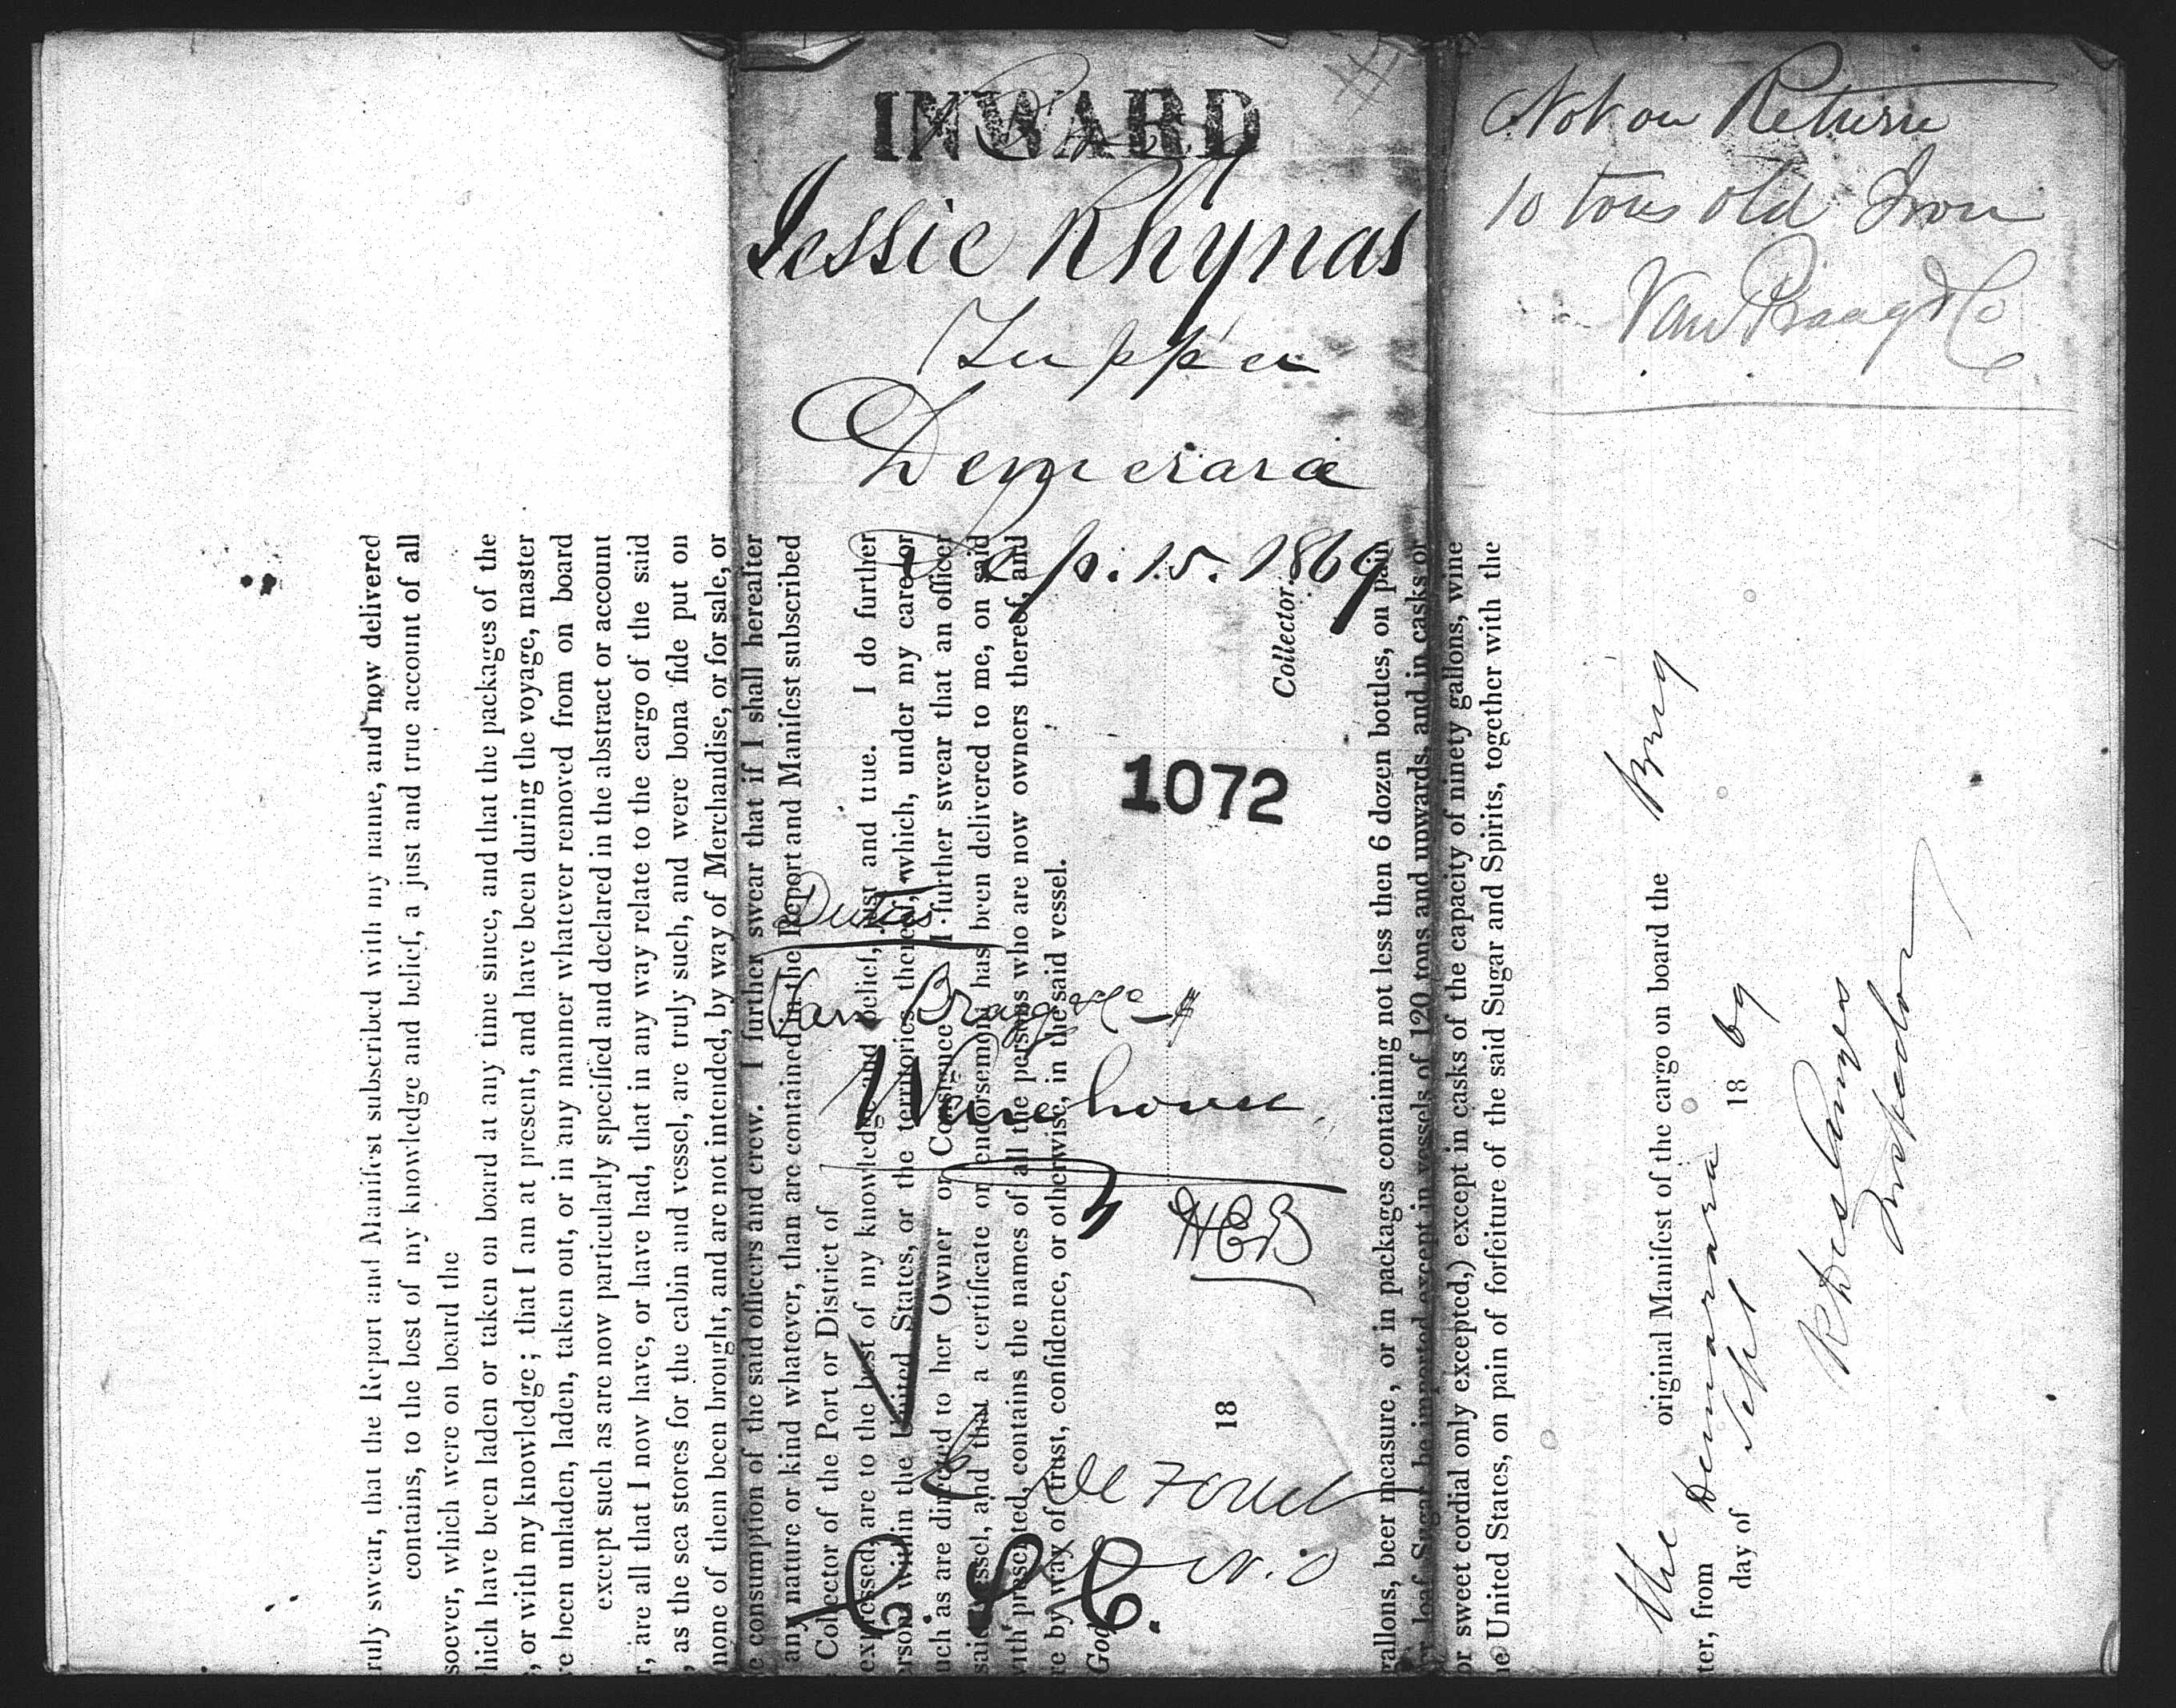 INWARD
Jessie Rhynas
Tupper
Demerara
Sep. 15. 1869
1072
Duties
Van Praag & Co - $
Warehouse
HEB
Not on Return
10 tons old Iron
Van Praag & Co
ruly swear, that the Report and Manifest subscribed with my name, and now delivered
contains, to the best of my knowledge and belief, a just and true account of all
soever, which were on board the
hich have been laden or taken on board at any time since, and that the packages of the
, or with my knowledge; that I am at present, and have been during the voyage, master
e been unladen, laden, taken out, or in any manner whatever removed from on board
except such as are now particularly specified and declared in the abstract or account
r, are all that I now have, or have had, that in any way relate to the cargo of the said
, as the sea stores for the cabin and vessel, are truly such, and were bona fide put on
none of them been brought, and are not intended, by way of Merchandise, or for sale, or
e consumption of the said officers and crew. I further swear that if I shall hereafter
any nature or kind whatever, than are contained in the Report and Manifest subscribed
Collector of the Port or District of
expressed, are to the best of my knowledge and belief, just and true. I do further
rsons within the United States, or the territories thereof, which, under my care or
uch as are directed to her Owner or Consignee I further swear that an officer
said vessel, and that a certificate or endorsement has been delivered to me, on said
with presented, contains the names of all the persons who are now owners thereof, and
re by way of trust, confidence, or otherwise, in the said vessel.
God.
18
Collector.
gallons, beer measure, or in packages containing not less then 6 dozen bottles, on pain
or loaf Sugar be imported except in vessels of 120 tons and upwards, and in casks or
or sweet cordial only excepted,) except in casks of the capacity of ninety gallons, wine
e United States, on pain of forfeiture of the said Sugar and Spirits, together with the
original Manifest of the cargo on board the Brig
the
ter, from Demarara
day of Sept 18 69
Inspector